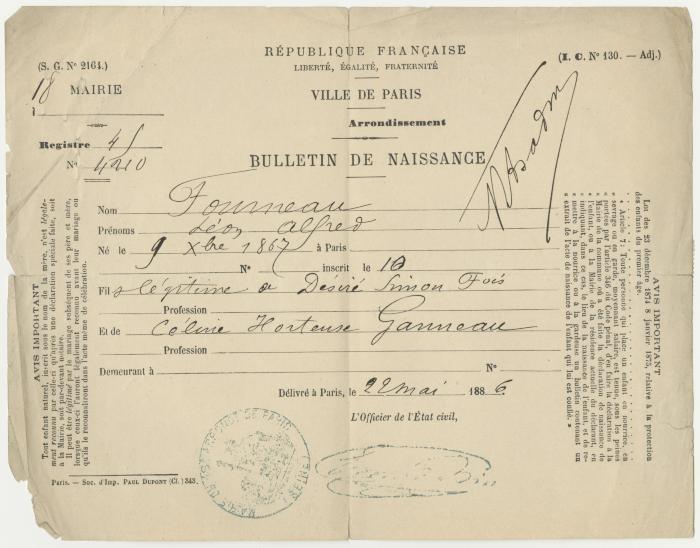 (S. G. Nº 2164.)
RÉPUBLIQUE FRANÇAISE
LIBERTÉ, ÉGALITÉ, FRATERNITÉ
(I. C. Nº 130. — Adj.)
18 MAIRIE
VILLE DE PARIS
Arrondissement
Registre 4
Nº 4210
BULLETIN DE NAISSANCE
Nom Fourneau
Prénoms Léon Alfred
Né le 9 Xbre 1867 à Paris
Nº inscrit le 10
Fils légitime de Désiré Simon
Profession
Et de Céline Hortense Ganneau
Profession
Demeurant à Nº
Délivré à Paris, le 22 mai 1886.
L'Officier de l'État civil,
Paris. — Soc. d'Imp. PAUL DUPONT (Cl.) 343.
AVIS IMPORTANT
Tout enfant naturel, inscrit sous le nom de la mère, n'est légale-
ment reconnu par celle-ci qu'après une déclaration spéciale faite, soit
à la Mairie, soit par-devant notaire.
Il peut être légitimé par le mariage subséquent de ses père et mère,
lorsque ceux-ci l'auront légalement reconnu avant leur mariage ou
qu'ils le reconnaîtront dans l'acte même de célébration.
AVIS IMPORTANT
Loi des 23 décembre 1874 8 janvier 1875, relative à la protection
des enfants du premier âge.
« Article 7: Toute personne qui place un enfant en nourrice, en
« sevrage ou en garde, moyennant salaire, est tenue, sous les peines
« portées par l'article 346 du Code pénal, d'en faire la déclaration à la
« Mairie de la commune où a été faite la déclaration de naissance de
« l'enfant, ou à la Mairie de la résidence actuelle du déclarant, en
« indiquant, dans ce cas, le lieu de la naissance de l'enfant, et de re-
« mettre à la nourrice ou à la gardeuse un bulletin contenant un
« extrait de l'acte de naissance de l'enfant qui lui est confié. »